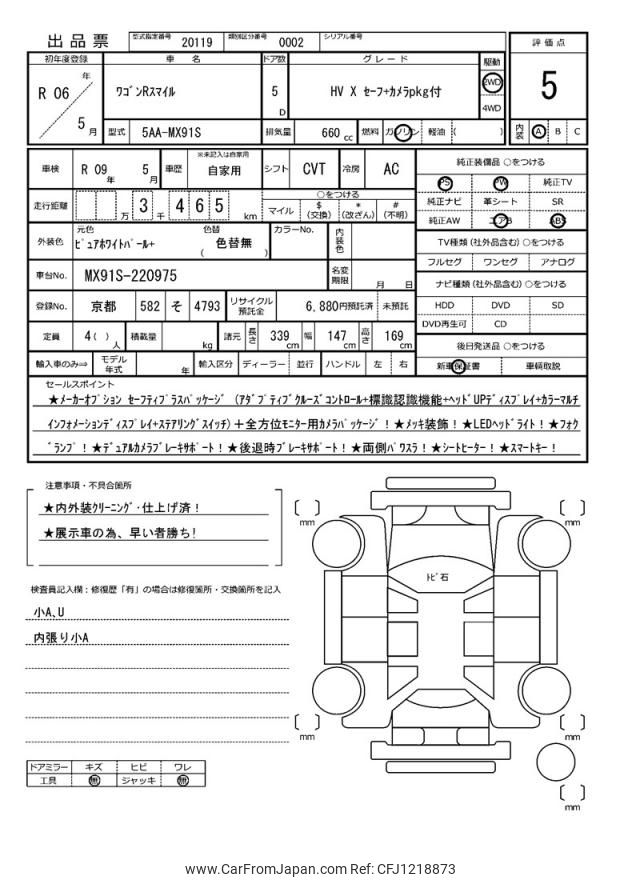 出品票 型式指定番号 20119 類別区分番号 0002 シリアル番号
評価点
5
内装 A B C
初年度登録 車名 ドア数 グレード 駆動
R 06 年 5 月
ワゴンRスマイル
5 D
HV X セーフ+カメラpkg付
2WD
4WD
型式 5AA-MX91S 排気量 660 cc 燃料 ガソリン 軽油 ( )
車検 R 09 年 5 月 車歴 ※未記入は自家用 自家用 シフト CVT 冷房 AC
純正装備品 ○をつける
PS PW 純正TV
純正ナビ 革シート SR
純正AW エアB ABS
走行距離 万 3 千 4 6 5 km
○をつける
マイル $(交換) *(改ざん) #(不明)
外装色 元色 ピュアホワイトパール+ 色替 ( 色替無 ) カラーNo. 内装色
TV種類 (社外品含む) ○をつける
フルセグ ワンセグ アナログ
車台No. MX91S-220975 名変期限 月 日
ナビ種類 (社外品含む) ○をつける
HDD DVD SD
DVD再生可 CD
登録No. 京都 582 そ 4793 リサイクル預託金 6,880円預託済 未預託
定員 4( ) 人 積載量 kg 諸元 長さ 339 cm 幅 147 cm 高さ 169 cm
後日発送品 ○をつける
新車保証書 車輌取説
輸入車のみ⇒ モデル年式 年 輸入区分 ディーラー 並行 ハンドル 左 右
セールスポイント
★メーカーオプション セーフティプラスパッケージ (アダプティブクルーズコントロール+標識認識機能+ヘッドUPディスプレイ+カラーマルチ
インフォメーションディスプレイ+ステアリングスイッチ)+全方位モニター用カメラパッケージ!★メッキ装飾!★LEDヘッドライト!★フォグ
ランプ!★デュアルカメラブレーキサポート!★後退時ブレーキサポート!★両側パワスラ!★シートヒーター!★スマートキー!
注意事項・不具合箇所
★内外装クリーニング・仕上げ済!
★展示車の為、早い者勝ち!
検査員記入欄:修復歴「有」の場合は修復箇所・交換箇所を記入
小A、U
内張り小A
ドアミラー キズ ヒビ ワレ
工具 無 ジャッキ 無
mm
mm
トビ石
mm
mm
mm
www.CarFromJapan.com Ref: CFJ1218873